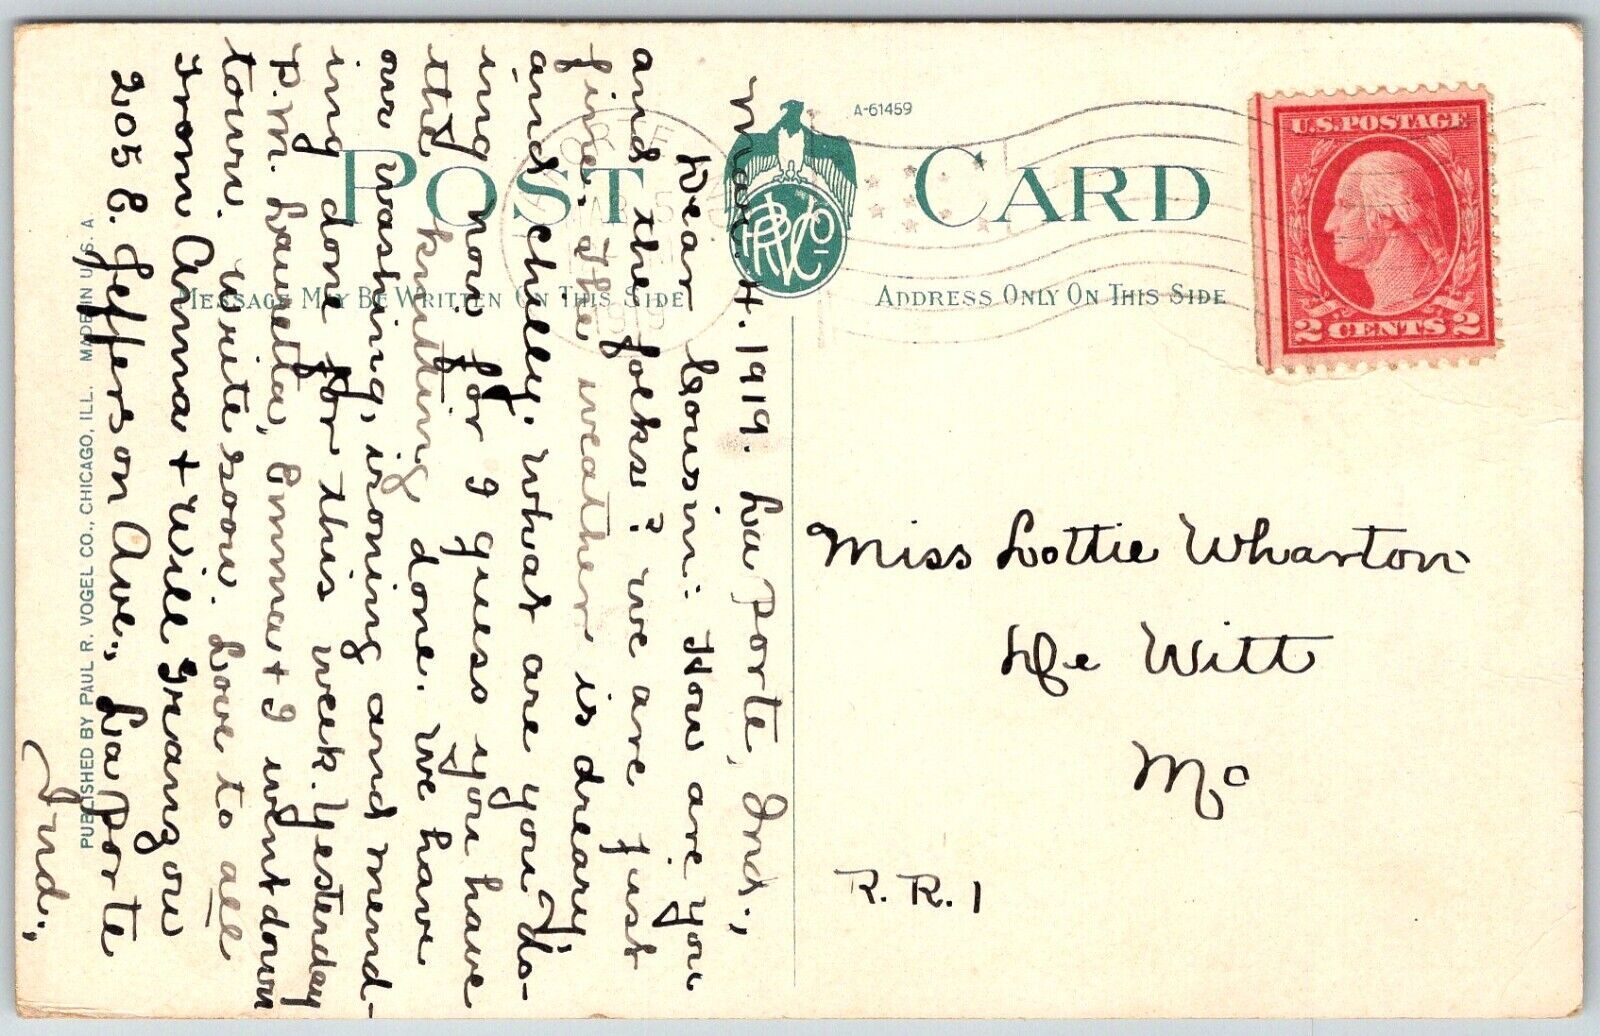 POST CARD
A-61459
MESSAGE MAY BE WRITTEN ON THIS SIDE
ADDRESS ONLY ON THIS SIDE
U.S. POSTAGE
2 CENTS 2
PUBLISHED BY PAUL R. VOGEL CO., CHICAGO, ILL. MADE IN U.S.A
Mar. 4. 1919. La Porte, Ind.,
Dear Cousin: How are you
and the folks? we are just
fine. The weather is dreary,
and chilly. What are you do-
ing now for I guess you have
the knitting done. We have
our washing, ironing and mend-
ing done for this week. Yesterday
P.M. Lauretta, Emma & I went down
town. Write soon. Love to all
From Anna & Will Granzow
205 E. Jefferson Ave., La Porte
Ind.,
Miss Lottie Wharton
De Witt
Mo
R.R. 1